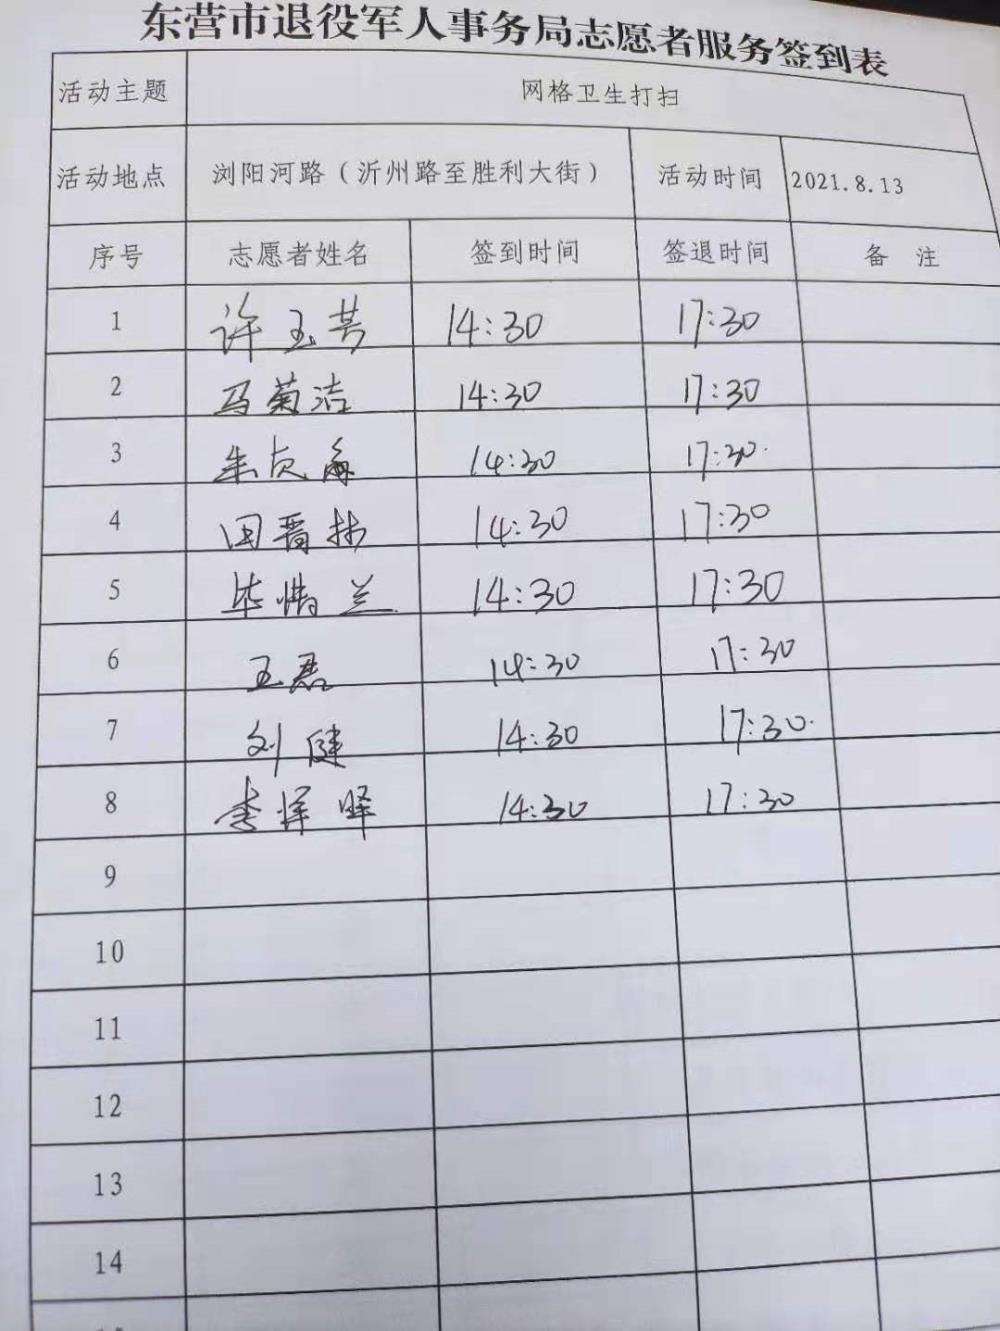 东营市退役军人事务局志愿者服务签到表
活动主题 网格卫生打扫
活动地点 浏阳河路（沂州路至胜利大街） 活动时间 2021.8.13
序号 志愿者姓名 签到时间 签退时间 备 注
1 许玉芳 14:30 17:30
2 马菊洁 14:30 17:30
3 14:30 17:30
4 田晋林 14:30 17:30
5 毕惜兰 14:30 17:30
6 王磊 14:30 17:30
7 刘健 14:30 17:30
8 14:30 17:30
9
10
11
12
13
14